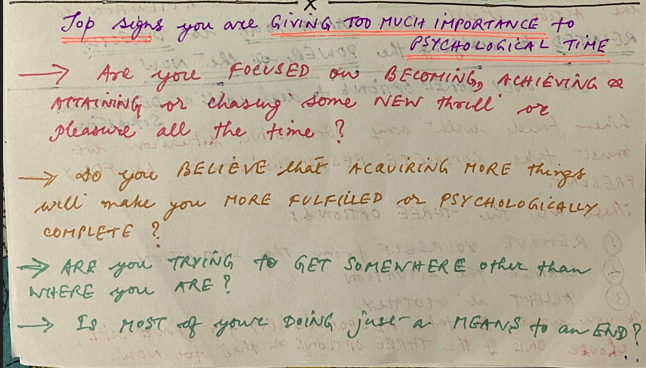 Top signs you are GIVING TOO MUCH IMPORTANCE to
PSYCHOLOGICAL TIME
→ Are you FOCUSED on BECOMING, ACHIEVING or
ATTAINING or chasing some NEW thrill or
pleasure all the time?
→ Do you BELIEVE that ACQUIRING MORE things
will make you MORE FULFILLED or PSYCHOLOGICALLY
COMPLETE?
→ ARE you TRYING to GET SOMEWHERE other than
WHERE you ARE?
→ Is MOST of your DOING just a MEANS to an END?